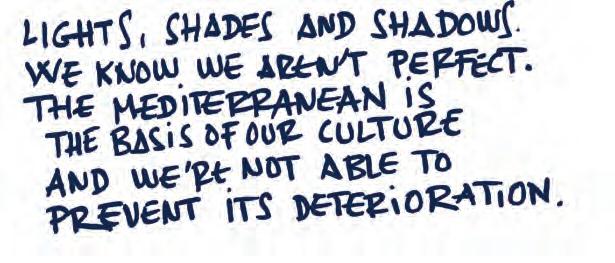 LIGHTS, SHADES AND SHADOWS.
WE KNOW WE AREN'T PERFECT.
THE MEDITERRANEAN IS
THE BASIS OF OUR CULTURE
AND WE'RE NOT ABLE TO
PREVENT ITS DETERIORATION.